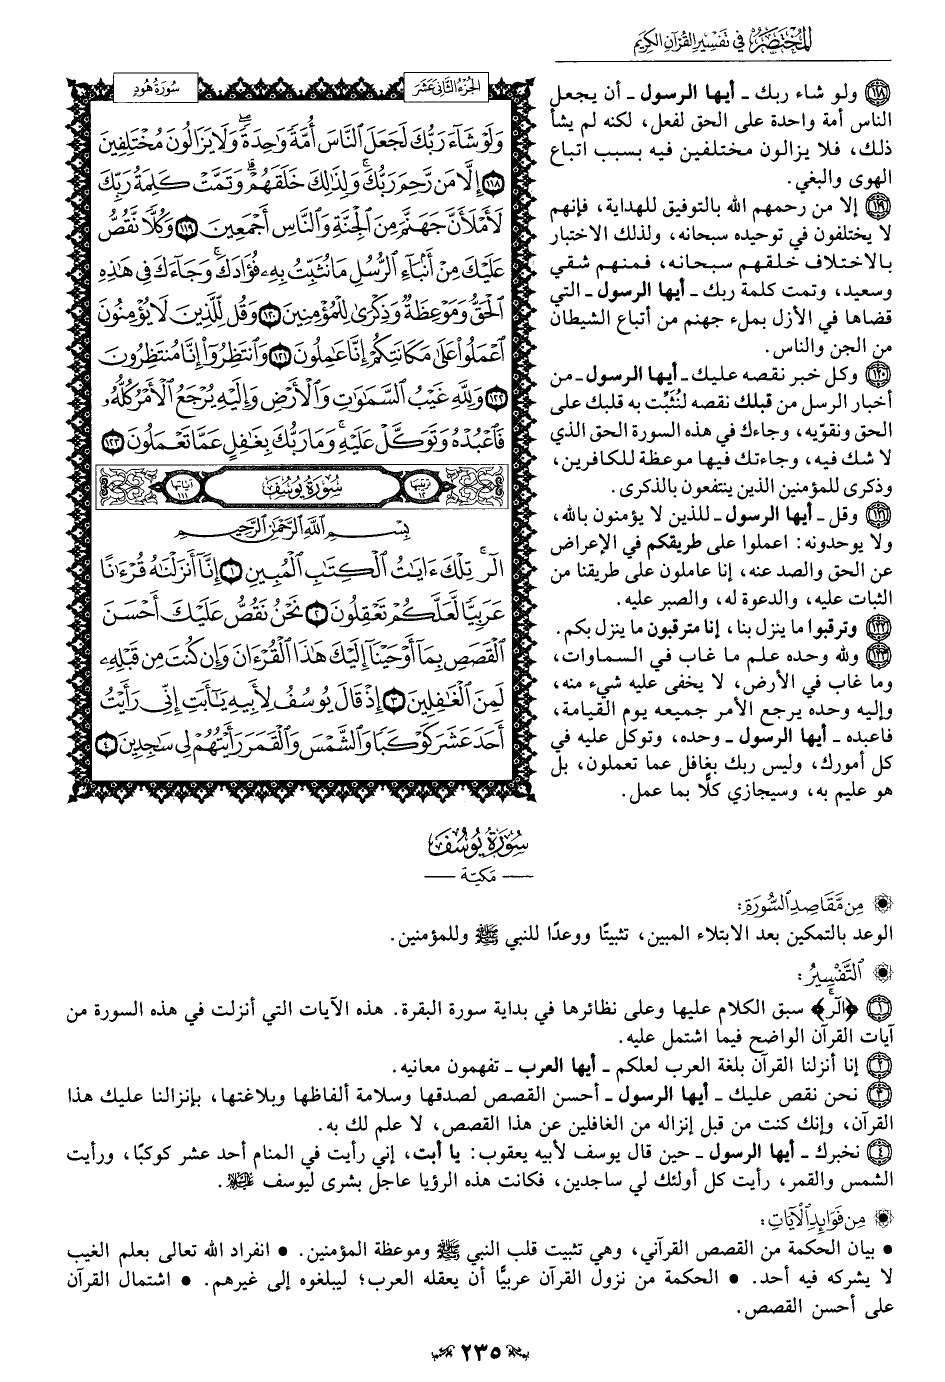 المختصر في تفسير القرآن الكريم
١١٨ ولو شاء ربك ـ أيها الرسول ـ أن يجعل
الناس أمة واحدة على الحق لفعل، لكنه لم يشأ
ذلك، فلا يزالون مختلفين فيه بسبب اتباع
الهوى والبغي.
١١٩ إلا من رحمهم الله بالتوفيق للهداية، فإنهم
لا يختلفون في توحيده سبحانه، ولذلك الاختبار
بالاختلاف خلقهم سبحانه، فمنهم شقي
وسعيد، وتمت كلمة ربك ـ أيها الرسول ـ التي
قضاها في الأزل بملء جهنم من أتباع الشيطان
من الجن والناس.
١٢٠ وكل خبر نقصه عليك ـ أيها الرسول ـ من
أخبار الرسل من قبلك نقصه لنُثَبِّت به قلبك على
الحق ونقوّيه، وجاءك في هذه السورة الحق الذي
لا شك فيه، وجاءتك فيها موعظة للكافرين،
وذكرى للمؤمنين الذين ينتفعون بالذكرى.
١٢١ وقل ـ أيها الرسول ـ للذين لا يؤمنون بالله،
ولا يوحدونه: اعملوا على طريقكم في الإعراض
عن الحق والصد عنه، إنا عاملون على طريقنا من
الثبات عليه، والدعوة له، والصبر عليه.
١٢٢ وترقبوا ما ينزل بنا، إنا مترقبون ما ينزل بكم.
١٢٣ ولله وحده علم ما غاب في السماوات،
وما غاب في الأرض، لا يخفى عليه شيء منه،
وإليه وحده يرجع الأمر جميعه يوم القيامة،
فاعبده ـ أيها الرسول ـ وحده، وتوكل عليه في
كل أمورك، وليس ربك بغافل عما تعملون، بل
هو عليم به، وسيجازي كلًّا بما عمل.
الجزء الثاني عشر
سورة هود
وَلَوْ شَآءَ رَبُّكَ لَجَعَلَ ٱلنَّاسَ أُمَّةً وَٰحِدَةً ۖ وَلَا يَزَالُونَ مُخْتَلِفِينَ
١١٨ إِلَّا مَن رَّحِمَ رَبُّكَ ۚ وَلِذَٰلِكَ خَلَقَهُمْ ۗ وَتَمَّتْ كَلِمَةُ رَبِّكَ
لَأَمْلَأَنَّ جَهَنَّمَ مِنَ ٱلْجِنَّةِ وَٱلنَّاسِ أَجْمَعِينَ ١١٩ وَكُلًّا نَّقُصُّ
عَلَيْكَ مِنْ أَنۢبَآءِ ٱلرُّسُلِ مَا نُثَبِّتُ بِهِۦ فُؤَادَكَ ۚ وَجَآءَكَ فِي هَٰذِهِ
ٱلْحَقُّ وَمَوْعِظَةٌ وَذِكْرَىٰ لِلْمُؤْمِنِينَ ١٢٠ وَقُل لِّلَّذِينَ لَا يُؤْمِنُونَ
ٱعْمَلُوا۟ عَلَىٰ مَكَانَتِكُمْ إِنَّا عَٰمِلُونَ ١٢١ وَٱنتَظِرُوٓا۟ إِنَّا مُنتَظِرُونَ
١٢٢ وَلِلَّهِ غَيْبُ ٱلسَّمَٰوَٰتِ وَٱلْأَرْضِ وَإِلَيْهِ يُرْجَعُ ٱلْأَمْرُ كُلُّهُۥ
فَٱعْبُدْهُ وَتَوَكَّلْ عَلَيْهِ ۚ وَمَا رَبُّكَ بِغَٰفِلٍ عَمَّا تَعْمَلُونَ ١٢٣
ترتيبها ١٢ سورة يوسف آياتها ١١١
بِسْمِ ٱللَّهِ ٱلرَّحْمَٰنِ ٱلرَّحِيمِ
الٓر ۚ تِلْكَ ءَايَٰتُ ٱلْكِتَٰبِ ٱلْمُبِينِ ١ إِنَّآ أَنزَلْنَٰهُ قُرْءَٰنًا
عَرَبِيًّا لَّعَلَّكُمْ تَعْقِلُونَ ٢ نَحْنُ نَقُصُّ عَلَيْكَ أَحْسَنَ
ٱلْقَصَصِ بِمَآ أَوْحَيْنَآ إِلَيْكَ هَٰذَا ٱلْقُرْءَانَ وَإِن كُنتَ مِن قَبْلِهِۦ
لَمِنَ ٱلْغَٰفِلِينَ ٣ إِذْ قَالَ يُوسُفُ لِأَبِيهِ يَٰٓأَبَتِ إِنِّي رَأَيْتُ
أَحَدَ عَشَرَ كَوْكَبًا وَٱلشَّمْسَ وَٱلْقَمَرَ رَأَيْتُهُمْ لِي سَٰجِدِينَ ٤
سورة يوسف
ـ مكية ـ
من مقاصد السورة:
الوعد بالتمكين بعد الابتلاء المبين، تثبيتًا ووعدًا للنبي ﷺ وللمؤمنين.
التفسير:
١ ﴿الٓر ۚ﴾ سبق الكلام عليها وعلى نظائرها في بداية سورة البقرة. هذه الآيات التي أنزلت في هذه السورة من
آيات القرآن الواضح فيما اشتمل عليه.
٢ إنا أنزلنا القرآن بلغة العرب لعلكم ـ أيها العرب ـ تفهمون معانيه.
٣ نحن نقص عليك ـ أيها الرسول ـ أحسن القصص لصدقها وسلامة ألفاظها وبلاغتها، بإنزالنا عليك هذا
القرآن، وإنك كنت من قبل إنزاله من الغافلين عن هذا القصص، لا علم لك به.
٤ نخبرك ـ أيها الرسول ـ حين قال يوسف لأبيه يعقوب: يا أبت، إني رأيت في المنام أحد عشر كوكبًا، ورأيت
الشمس والقمر، رأيت كل أولئك لي ساجدين، فكانت هذه الرؤيا عاجل بشرى ليوسف عليه السلام.
من فوائد الآيات:
• بيان الحكمة من القصص القرآني، وهي تثبيت قلب النبي ﷺ وموعظة المؤمنين. • انفراد الله تعالى بعلم الغيب
لا يشركه فيه أحد. • الحكمة من نزول القرآن عربيًّا أن يعقله العرب؛ ليبلغوه إلى غيرهم. • اشتمال القرآن
على أحسن القصص.
٢٣٥